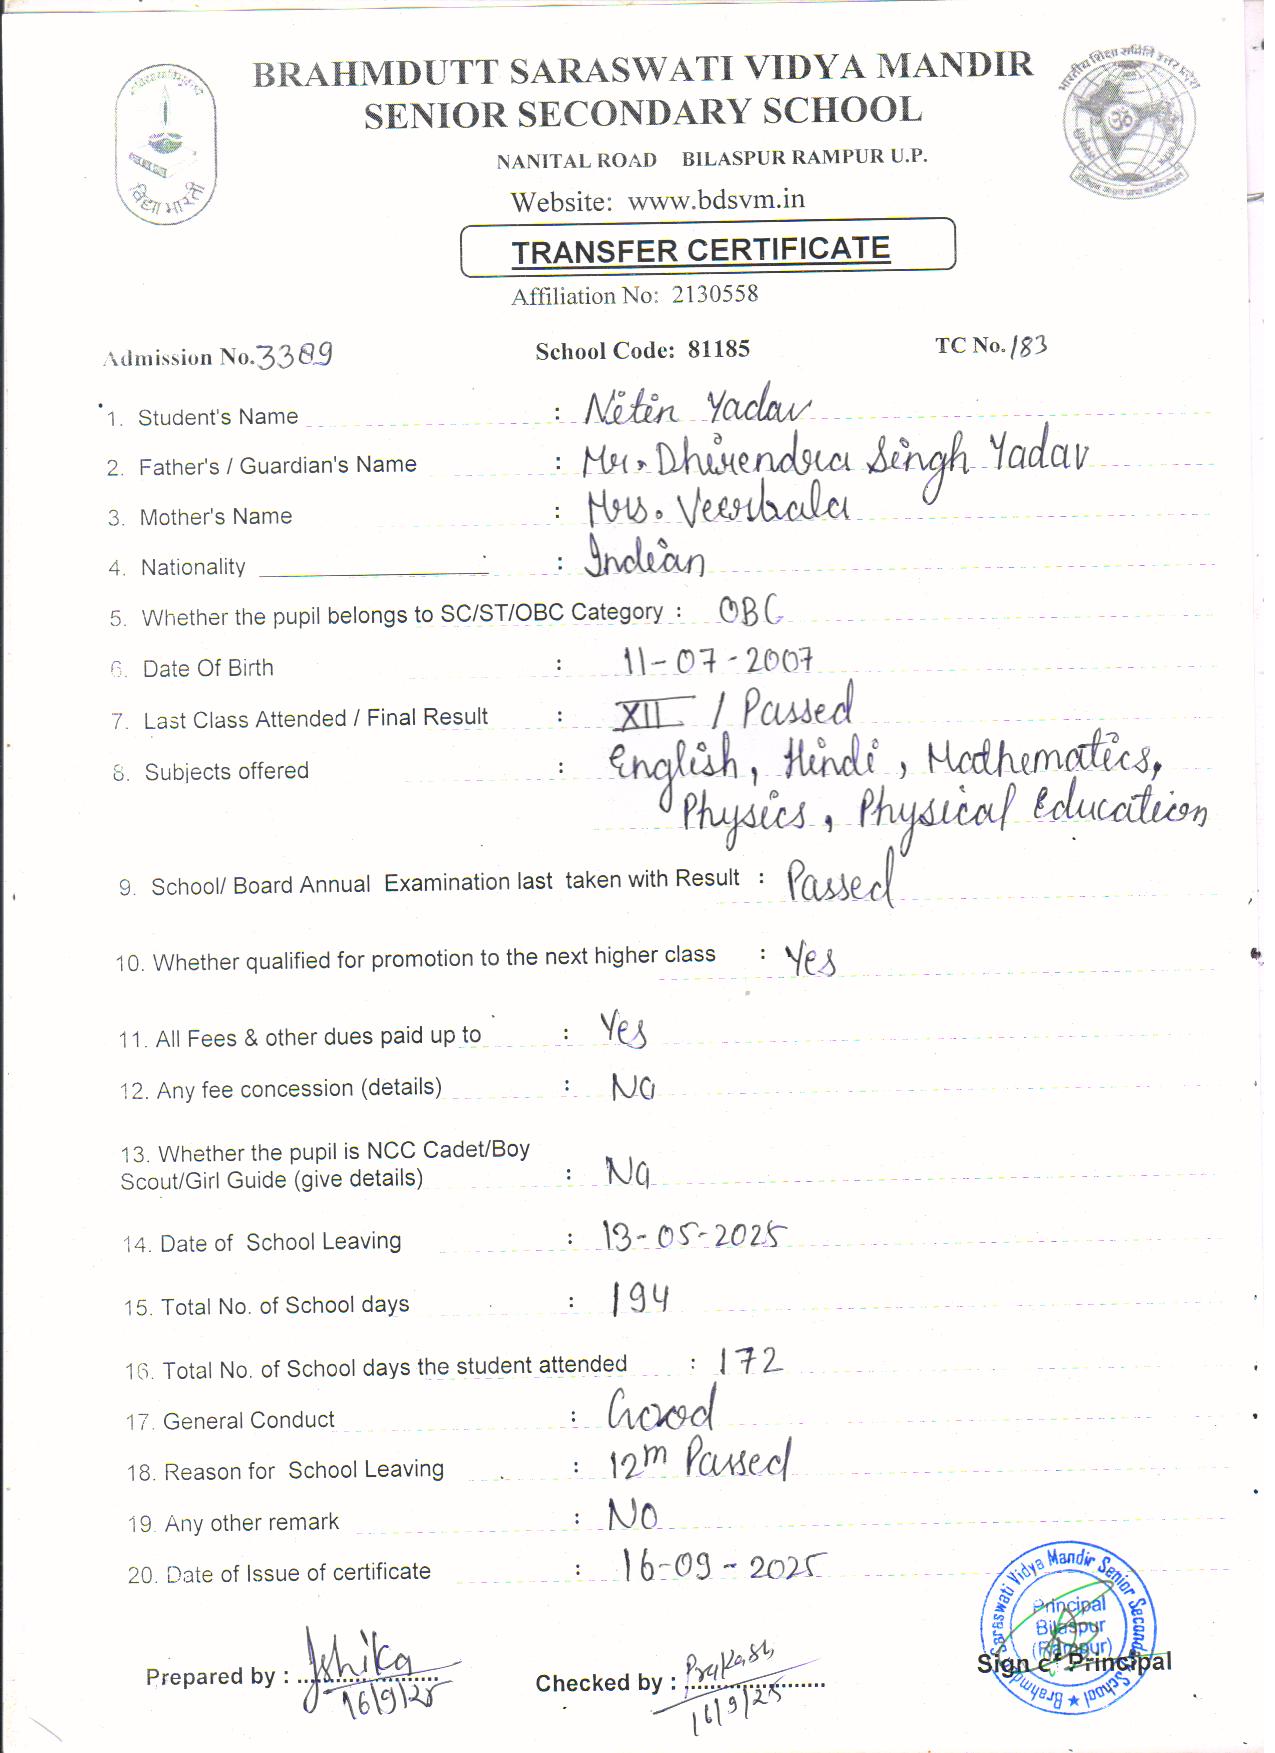 BRAHMDUTT SARASWATI VIDYA MANDIR
SENIOR SECONDARY SCHOOL
NANITAL ROAD BILASPUR RAMPUR U.P.
Website: www.bdsvm.in
TRANSFER CERTIFICATE
Affiliation No: 2130558
विद्या भारती
Admission No. 3389 School Code: 81185 TC No. 183
1. Student's Name : Nitin Yadav
2. Father's / Guardian's Name : Mr. Dhirendra Singh Yadav
3. Mother's Name : Mrs. Veerbala
4. Nationality : Indian
5. Whether the pupil belongs to SC/ST/OBC Category : OBC
6. Date Of Birth : 11-07-2007
7. Last Class Attended / Final Result : XII / Passed
8. Subjects offered : English, Hindi, Mathematics,
Physics, Physical Education
9. School/ Board Annual Examination last taken with Result : Passed
10. Whether qualified for promotion to the next higher class : Yes
11. All Fees & other dues paid up to : Yes
12. Any fee concession (details) : No
13. Whether the pupil is NCC Cadet/Boy
Scout/Girl Guide (give details) : No
14. Date of School Leaving : 13-05-2025
15. Total No. of School days : 194
16. Total No. of School days the student attended : 172
17. General Conduct : Good
18. Reason for School Leaving : 12th Passed
19. Any other remark : No
20. Date of Issue of certificate : 16-09-2025
Saraswati Vidya Mandir Senior Secondary School ★ Brahmdutt
Principal
Bilaspur
(Rampur)
Prepared by : Ishika Checked by : Prakash Sign of Principal
16/9/25 16/9/25